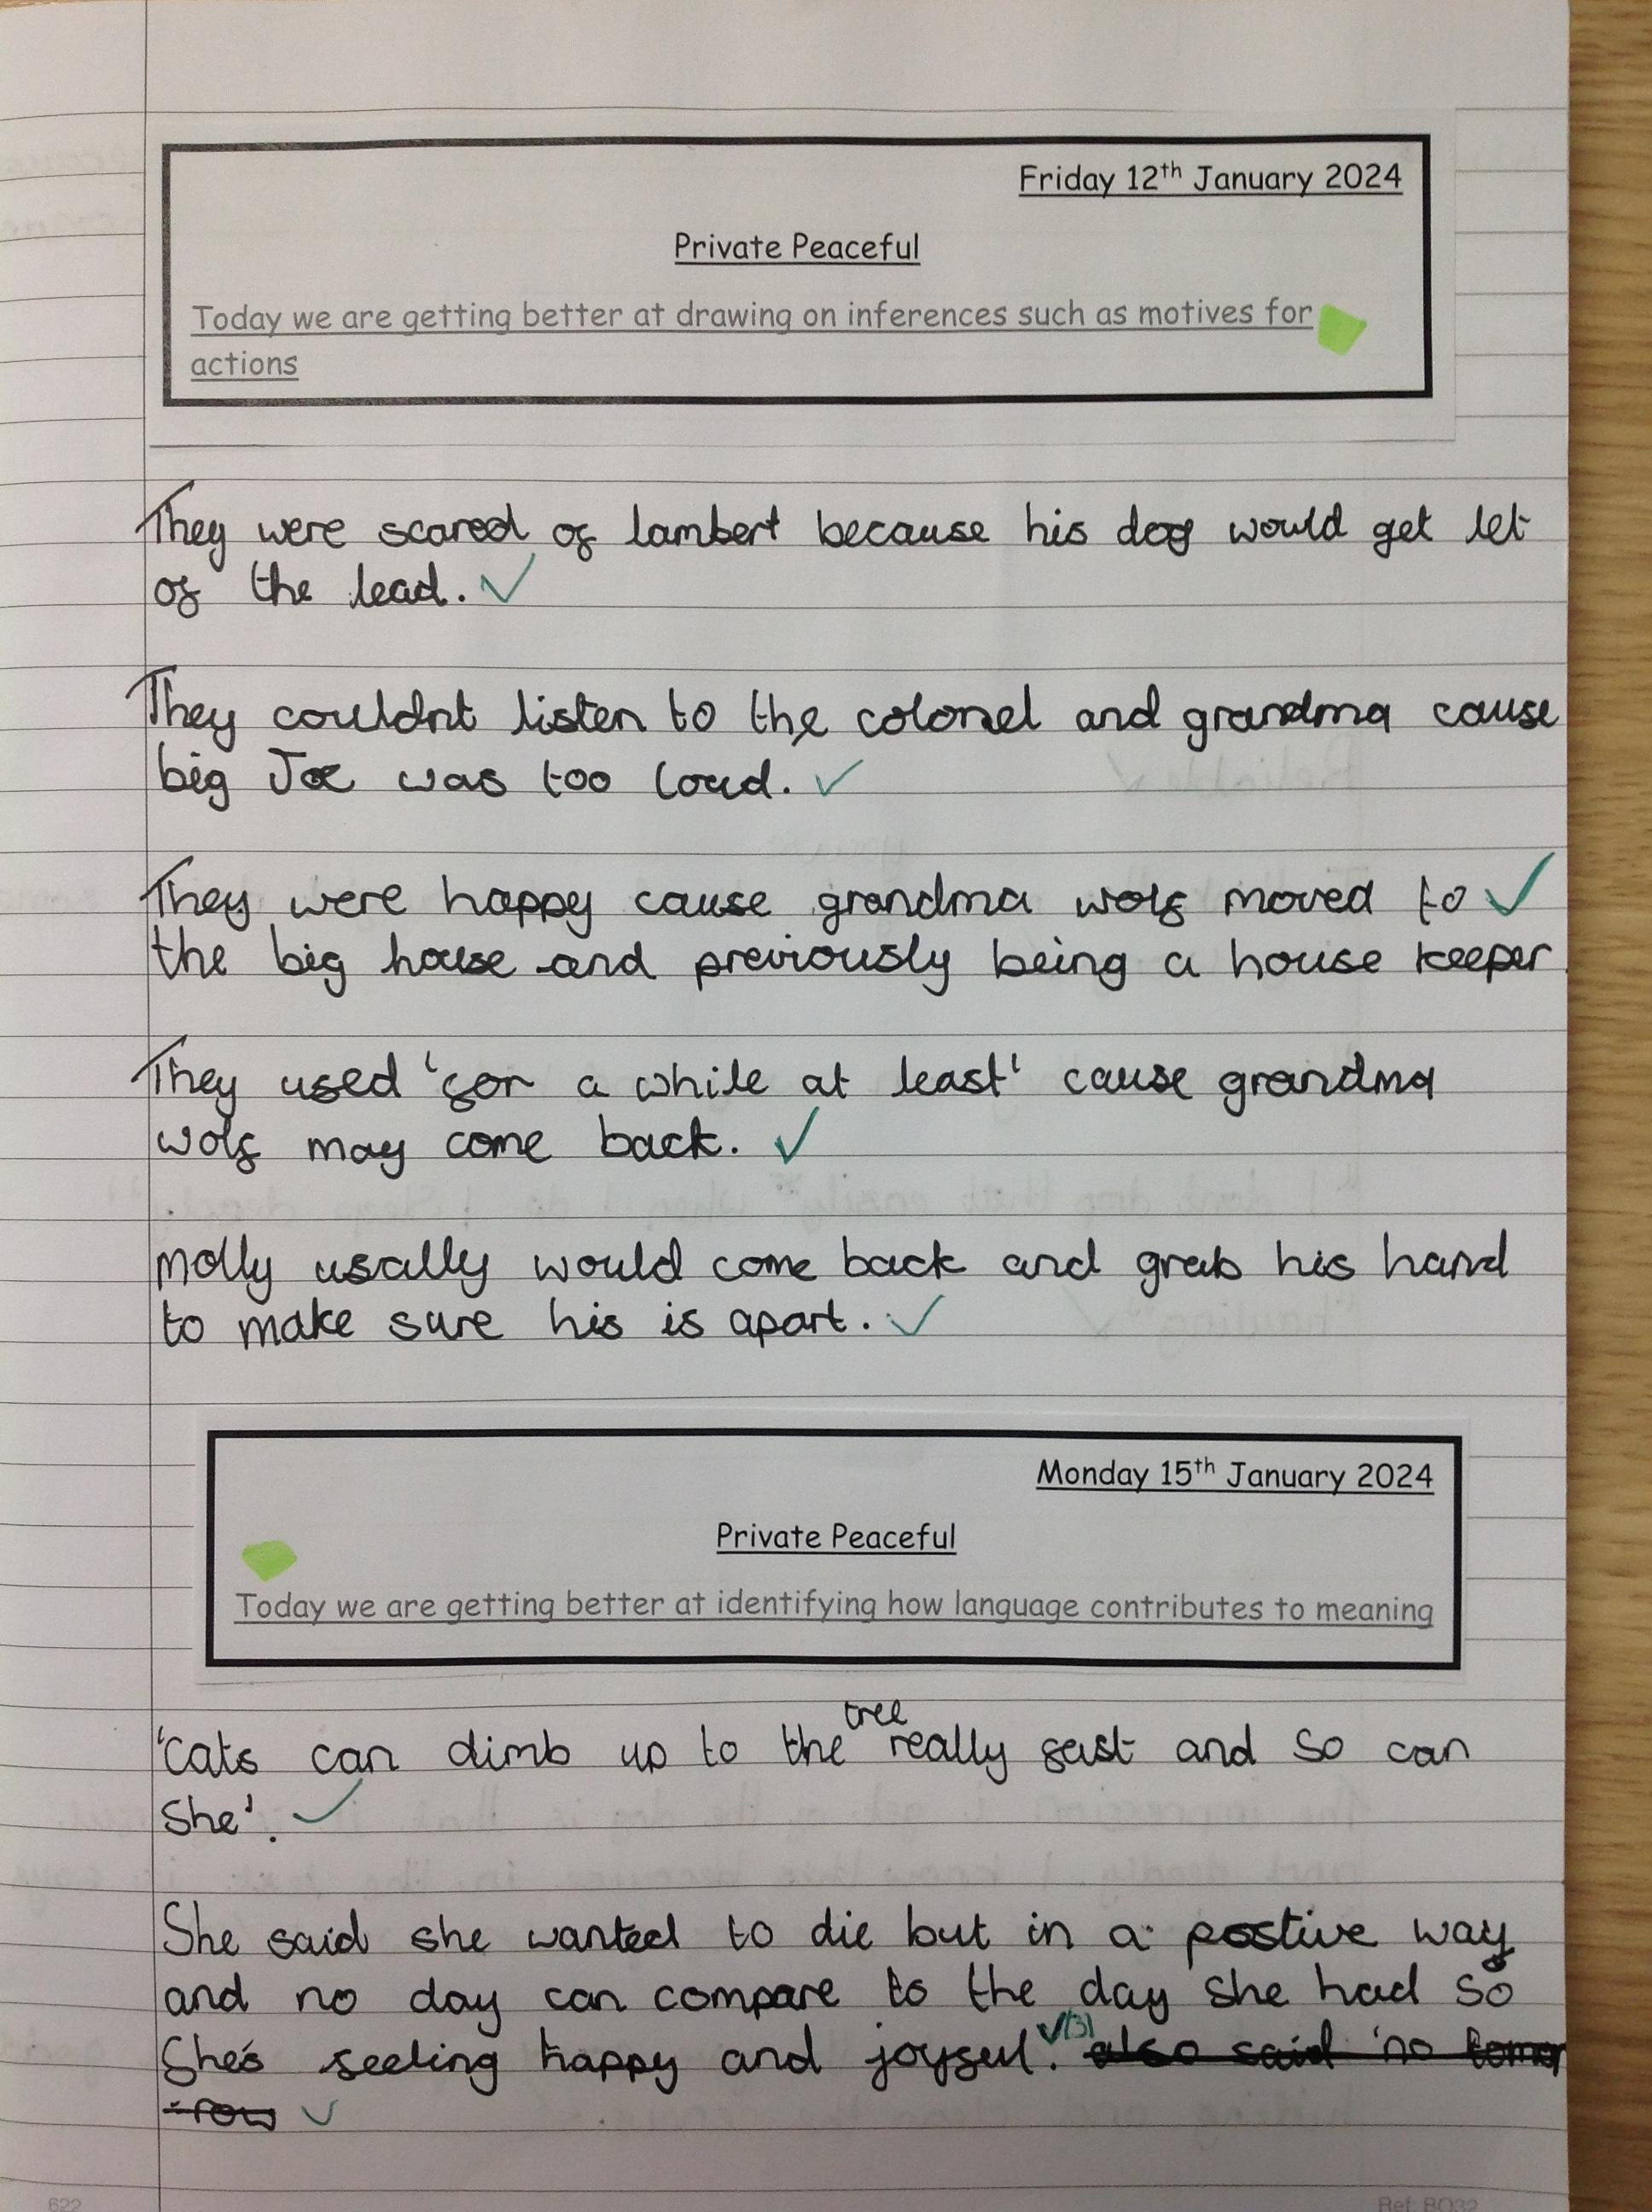 Friday 12th January 2024
Private Peaceful
Today we are getting better at drawing on inferences such as motives for
actions
They were scared of lambert because his dog would get let
of the lead.
They couldnt listen to the colonel and grandma cause
big Joe was too loud.
They were happy cause grandma wolf moved to
the big house and previously being a house keeper
They used 'for a while at least' cause grandma
wolf may come back.
Molly usally would come back and grab his hand
to make sure his is apart.
Monday 15th January 2024
Private Peaceful
Today we are getting better at identifying how language contributes to meaning
'Cats can climb up to the tree really fast and so can
She'.
She said she wanted to die but in a postive way
and no day can compare to the day she had so
She's feeling happy and joyful. (3) also said 'no tomor
-row
622
Ref: BO32